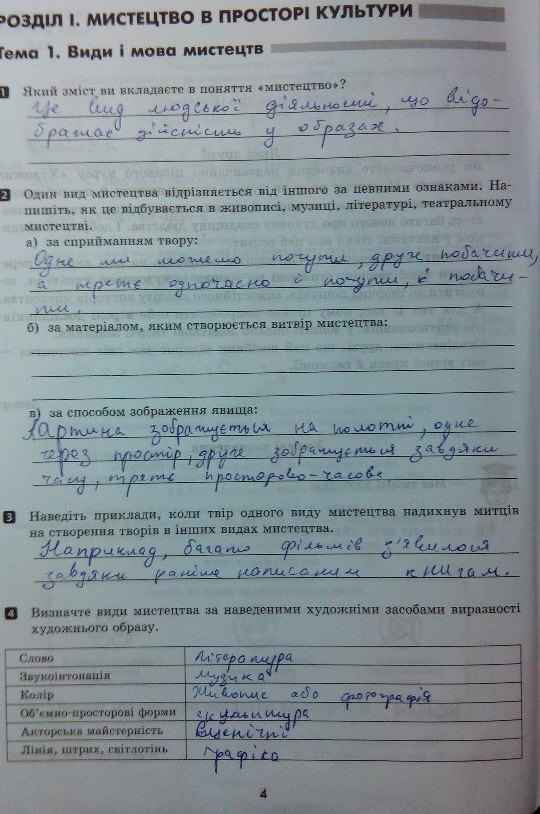 РОЗДІЛ I. МИСТЕЦТВО В ПРОСТОРІ КУЛЬТУРИ
Тема 1. Види і мова мистецтв
1 Який зміст ви вкладаєте в поняття «мистецтво»?
Це вид людської діяльності, що відо-
бражає дійсність у образах.
2 Один вид мистецтва відрізняється від іншого за певними ознаками. На-
пишіть, як це відбувається в живописі, музиці, літературі, театральному
мистецтві.
а) за сприйманням твору:
Одне ми можемо почути, друге побачити,
а третє одночасно і почути, і побачи-
ти.
б) за матеріалом, яким створюється витвір мистецтва:
в) за способом зображення явища:
Картина зображується на полотні, одне
через простір, друге зображується завдяки
часу, третє просторово-часове
3 Наведіть приклади, коли твір одного виду мистецтва надихнув митців
на створення творів в інших видах мистецтва.
Наприклад, багато фільмів з'явилося
завдяки раніше написаним книгам.
4 Визначте види мистецтва за наведеними художніми засобами виразності
художнього образу.
Слово Література
Звукоінтонація Музика
Колір Живопис або фотографія
Об'ємно-просторові форми скульптура
Акторська майстерність Сценічні
Лінія, штрих, світлотінь Графіка
4